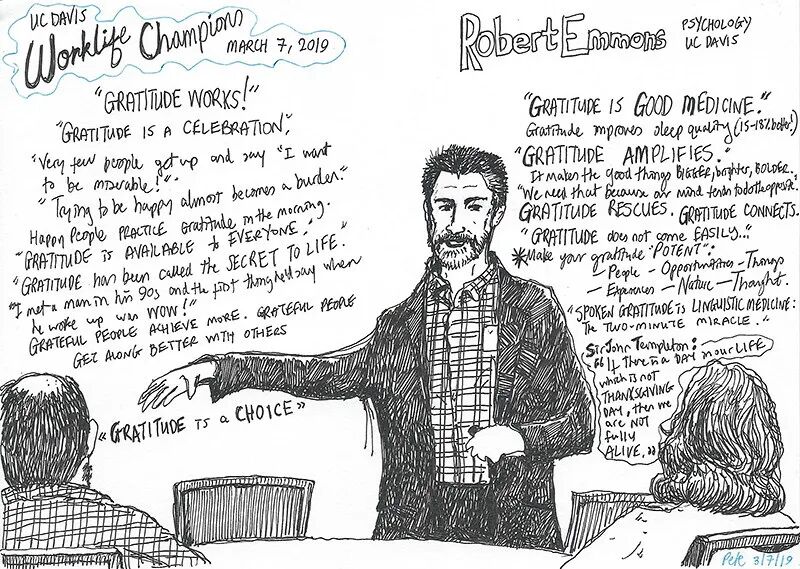 UC DAVIS
Worklife Champions
MARCH 7, 2019
"GRATITUDE WORKS!"
"GRATITUDE IS A CELEBRATION."
"Very few people get up and say "I want
to be miserable!"".
"Trying to be happy almost becomes a burden."
Happy People PRACTICE gratitude in the morning.
"GRATITUDE is AVAILABLE to EVERYONE."
"GRATITUDE has been called the SECRET TO LIFE."
"I met a man in his 90s and the first thing he'd say when
he woke up was WOW!"
GRATEFUL PEOPLE ACHIEVE MORE. GRATEFUL PEOPLE
GET ALONG BETTER WITH OTHERS
"GRATITUDE IS a CHOICE"
Robert Emmons
PSYCHOLOGY
UC DAVIS
"GRATITUDE IS GOOD MEDICINE."
Gratitude improves sleep quality (15-18% better!)
"GRATITUDE AMPLIFIES."
It makes the good things BIGGER, brighter, BOLDER.
"We need that because our mind tends to do the opposite."
GRATITUDE RESCUES. GRATITUDE CONNECTS.
"GRATITUDE does not come EASILY..."
*Make your gratitude "POTENT":
- People - Opportunities - Things
- Experiences - Nature - Thought.
"SPOKEN GRATITUDE IS LINGUISTIC MEDICINE:
The TWO-MINUTE MIRACLE."
Sir John Templeton:
"If there is a DAY in our LIFE
which is not
THANKSGIVING
DAY, then we
are NOT
fully
ALIVE."
Pete 3/7/19